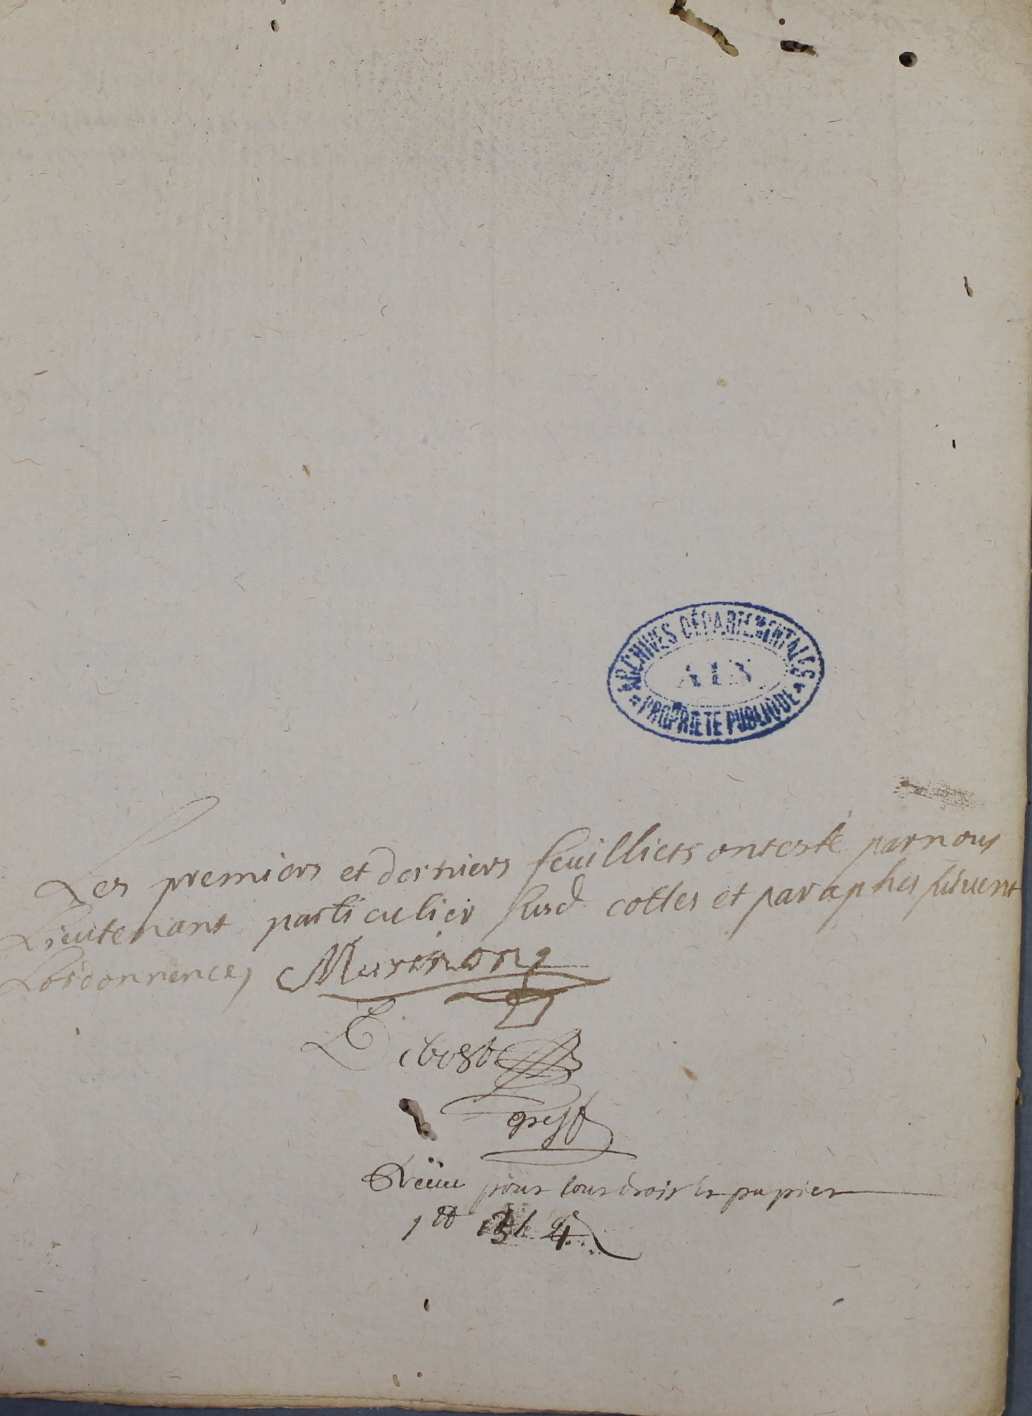 ARCHIVES DÉPARTEMENTALES
AIN
PROPRIÉTÉ PUBLIQUE
Les premiers et derniers feuilliets ont esté par nous
Lieutenant particulier susd cottes et paraphes suivent
Lordonnence,
greff
Receu pour tous droits et papier